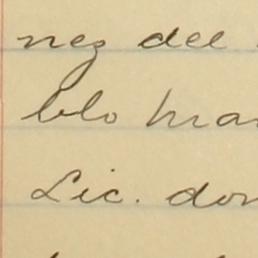 nez del
blo man
Lic. don